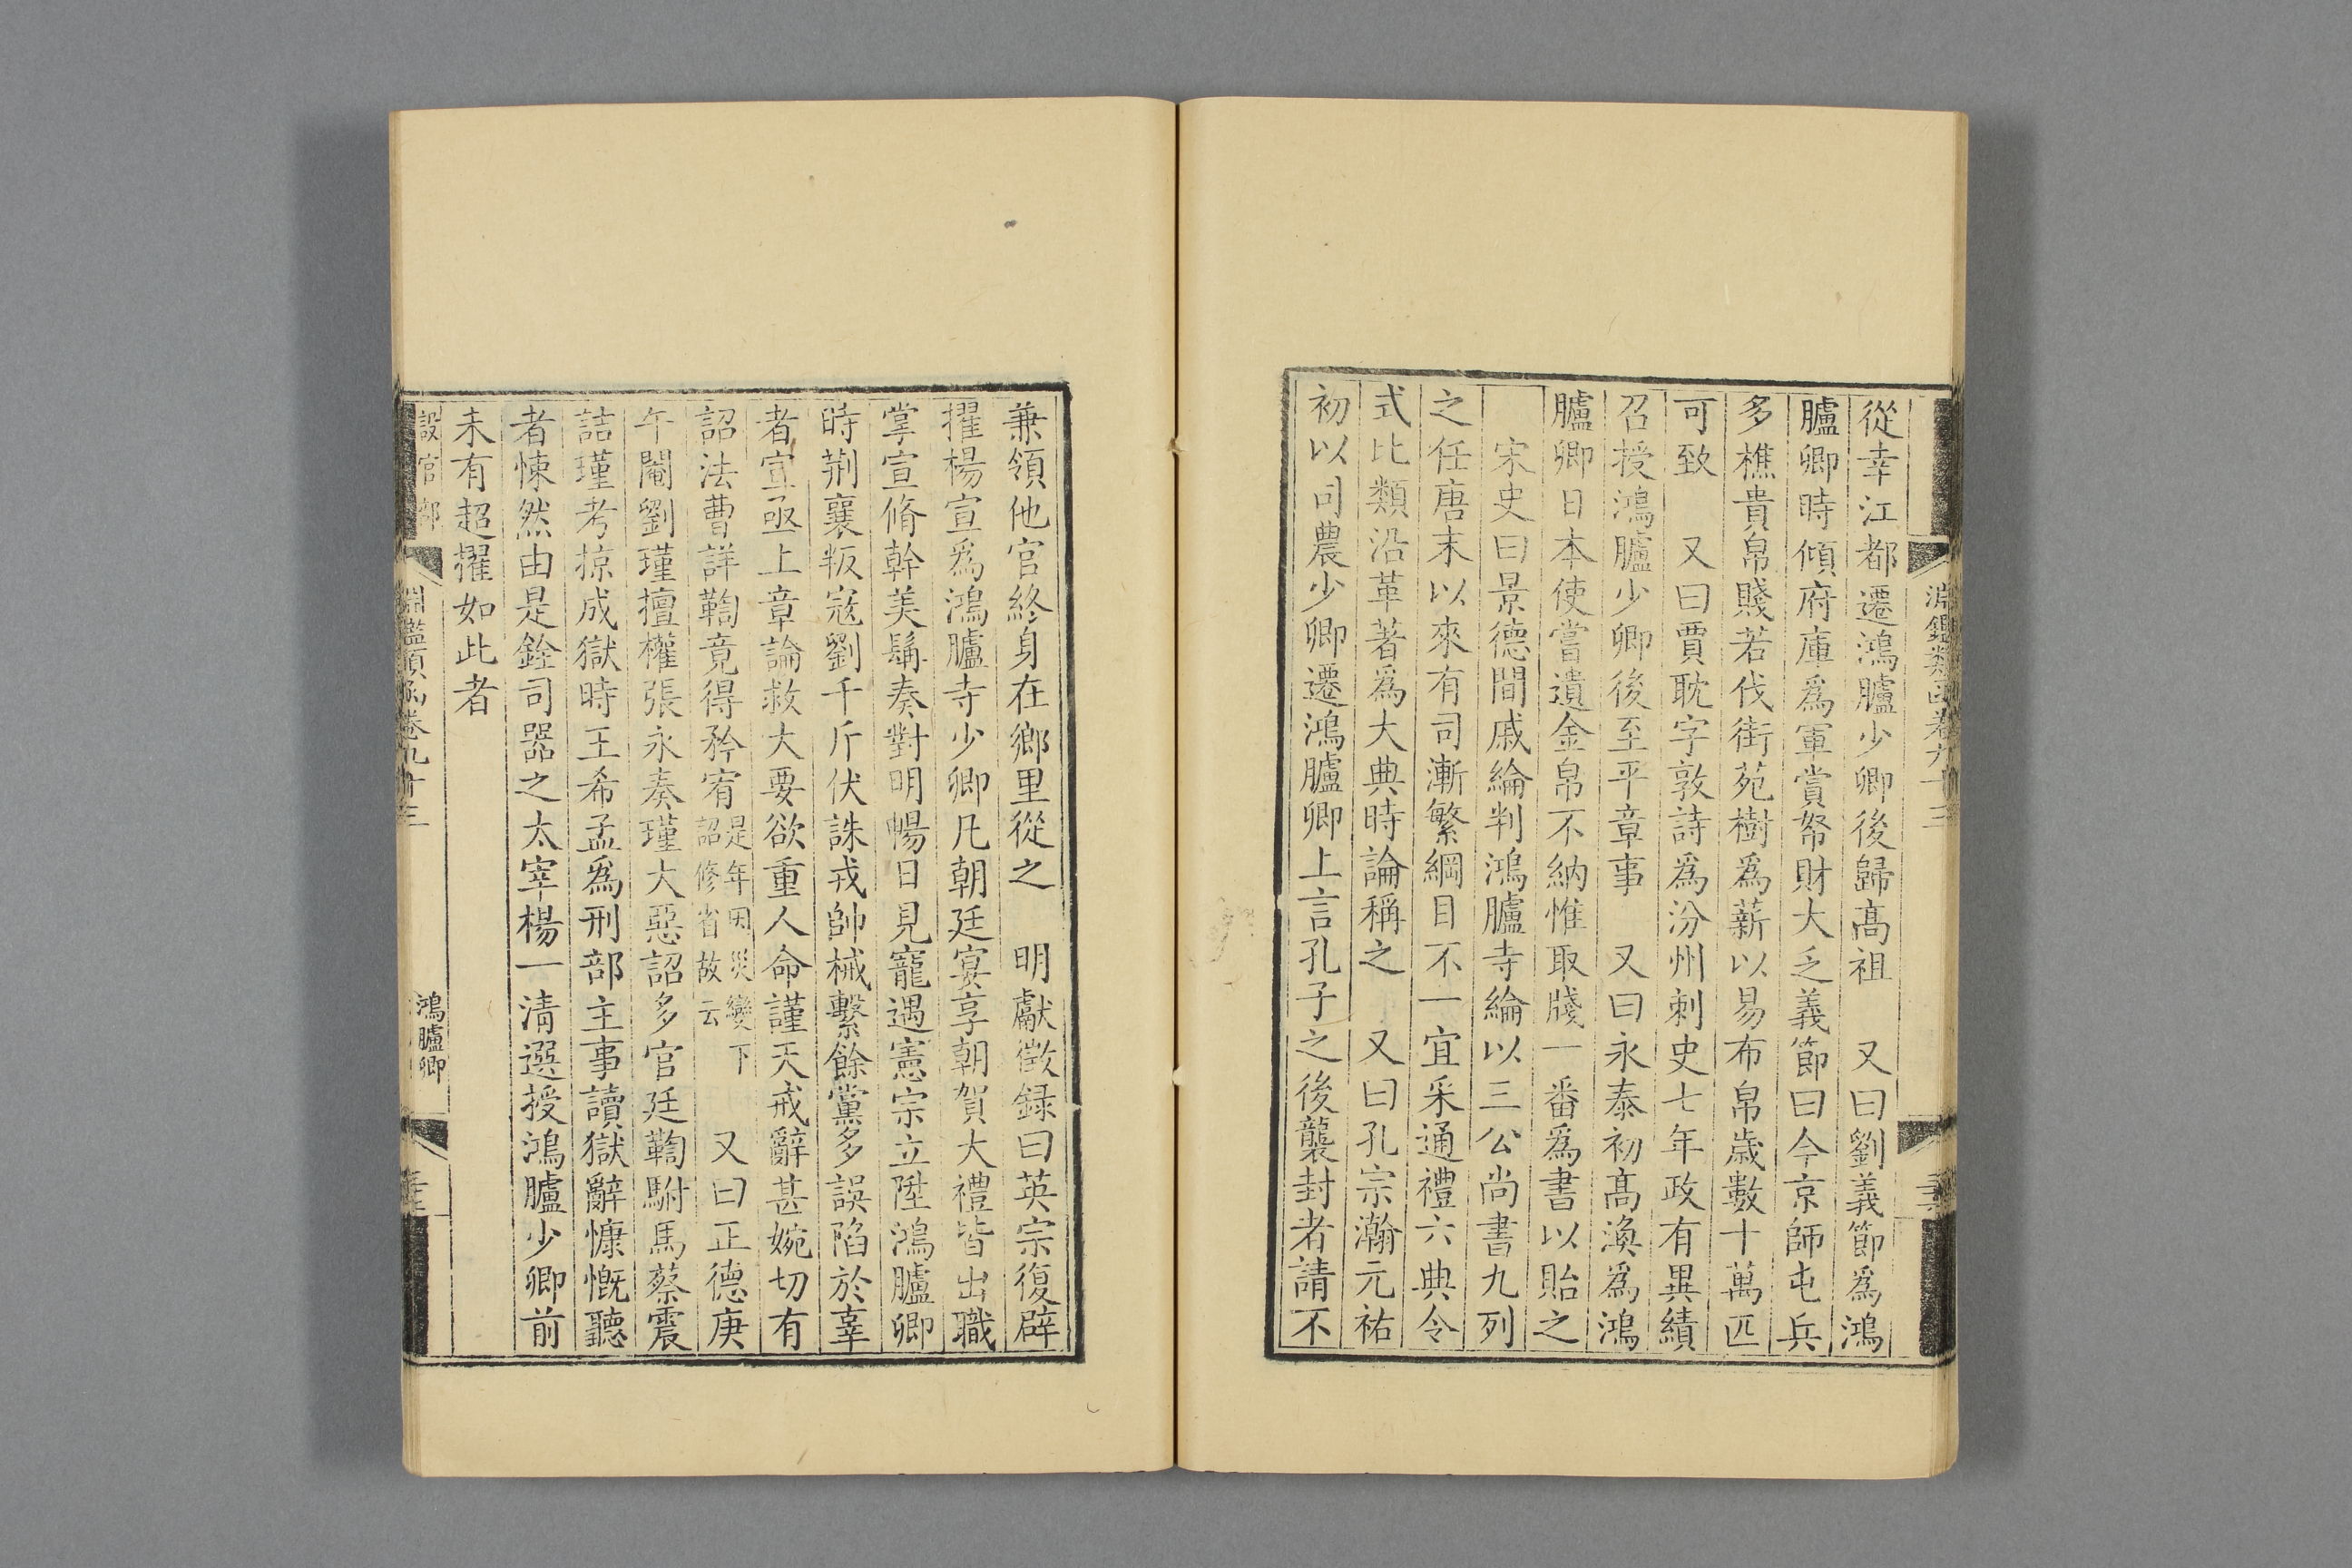 淵鑑類函卷九十三
從幸江都遷鴻臚少卿後歸髙祖　又曰劉義節爲鴻
臚卿時傾府庫爲軍賞帑財大乏義節曰今京師屯兵
多樵貴帛賤若伐街苑樹爲薪以易布帛歳數十萬匹
可致　又曰賈耽字敦詩爲汾州刺史七年政有異績
召授鴻臚少卿後至平章事　又曰永泰初髙渙爲鴻
臚卿日本使嘗遺金帛不納惟取牋一番爲書以貽之
宋史曰景德間戚綸判鴻臚寺綸以三公尚書九列
之任唐末以來有司漸繁綱目不一宜采通禮六典令
式比類沿革著爲大典時論稱之　又曰孔宗瀚元祐
初以司農少卿遷鴻臚卿上言孔子之後襲封者請不
兼領他官終身在鄉里從之　明獻徵録曰英宗復辟
擢楊宣爲鴻臚寺少卿凡朝廷宴享朝賀大禮皆出職
掌宣脩幹美鬚奏對明暢日見寵遇憲宗立陞鴻臚卿
時荆襄叛寇劉千斤伏誅戎帥械繫餘黨多誤陷於辜
者宣亟上章論救大要欲重人命謹天戒辭甚婉切有
詔法曹詳鞫竟得矜宥是年因災變下詔修省故云　又曰正德庚
午閹劉瑾擅權張永奏瑾大惡詔多官廷鞫駙馬蔡震
詰瑾考掠成獄時王希孟爲刑部主事讀獄辭慷慨聽
者悚然由是銓司器之太宰楊一清選授鴻臚少卿前
未有超擢如此者
設官部
淵鑑類函卷九十三
鴻臚卿